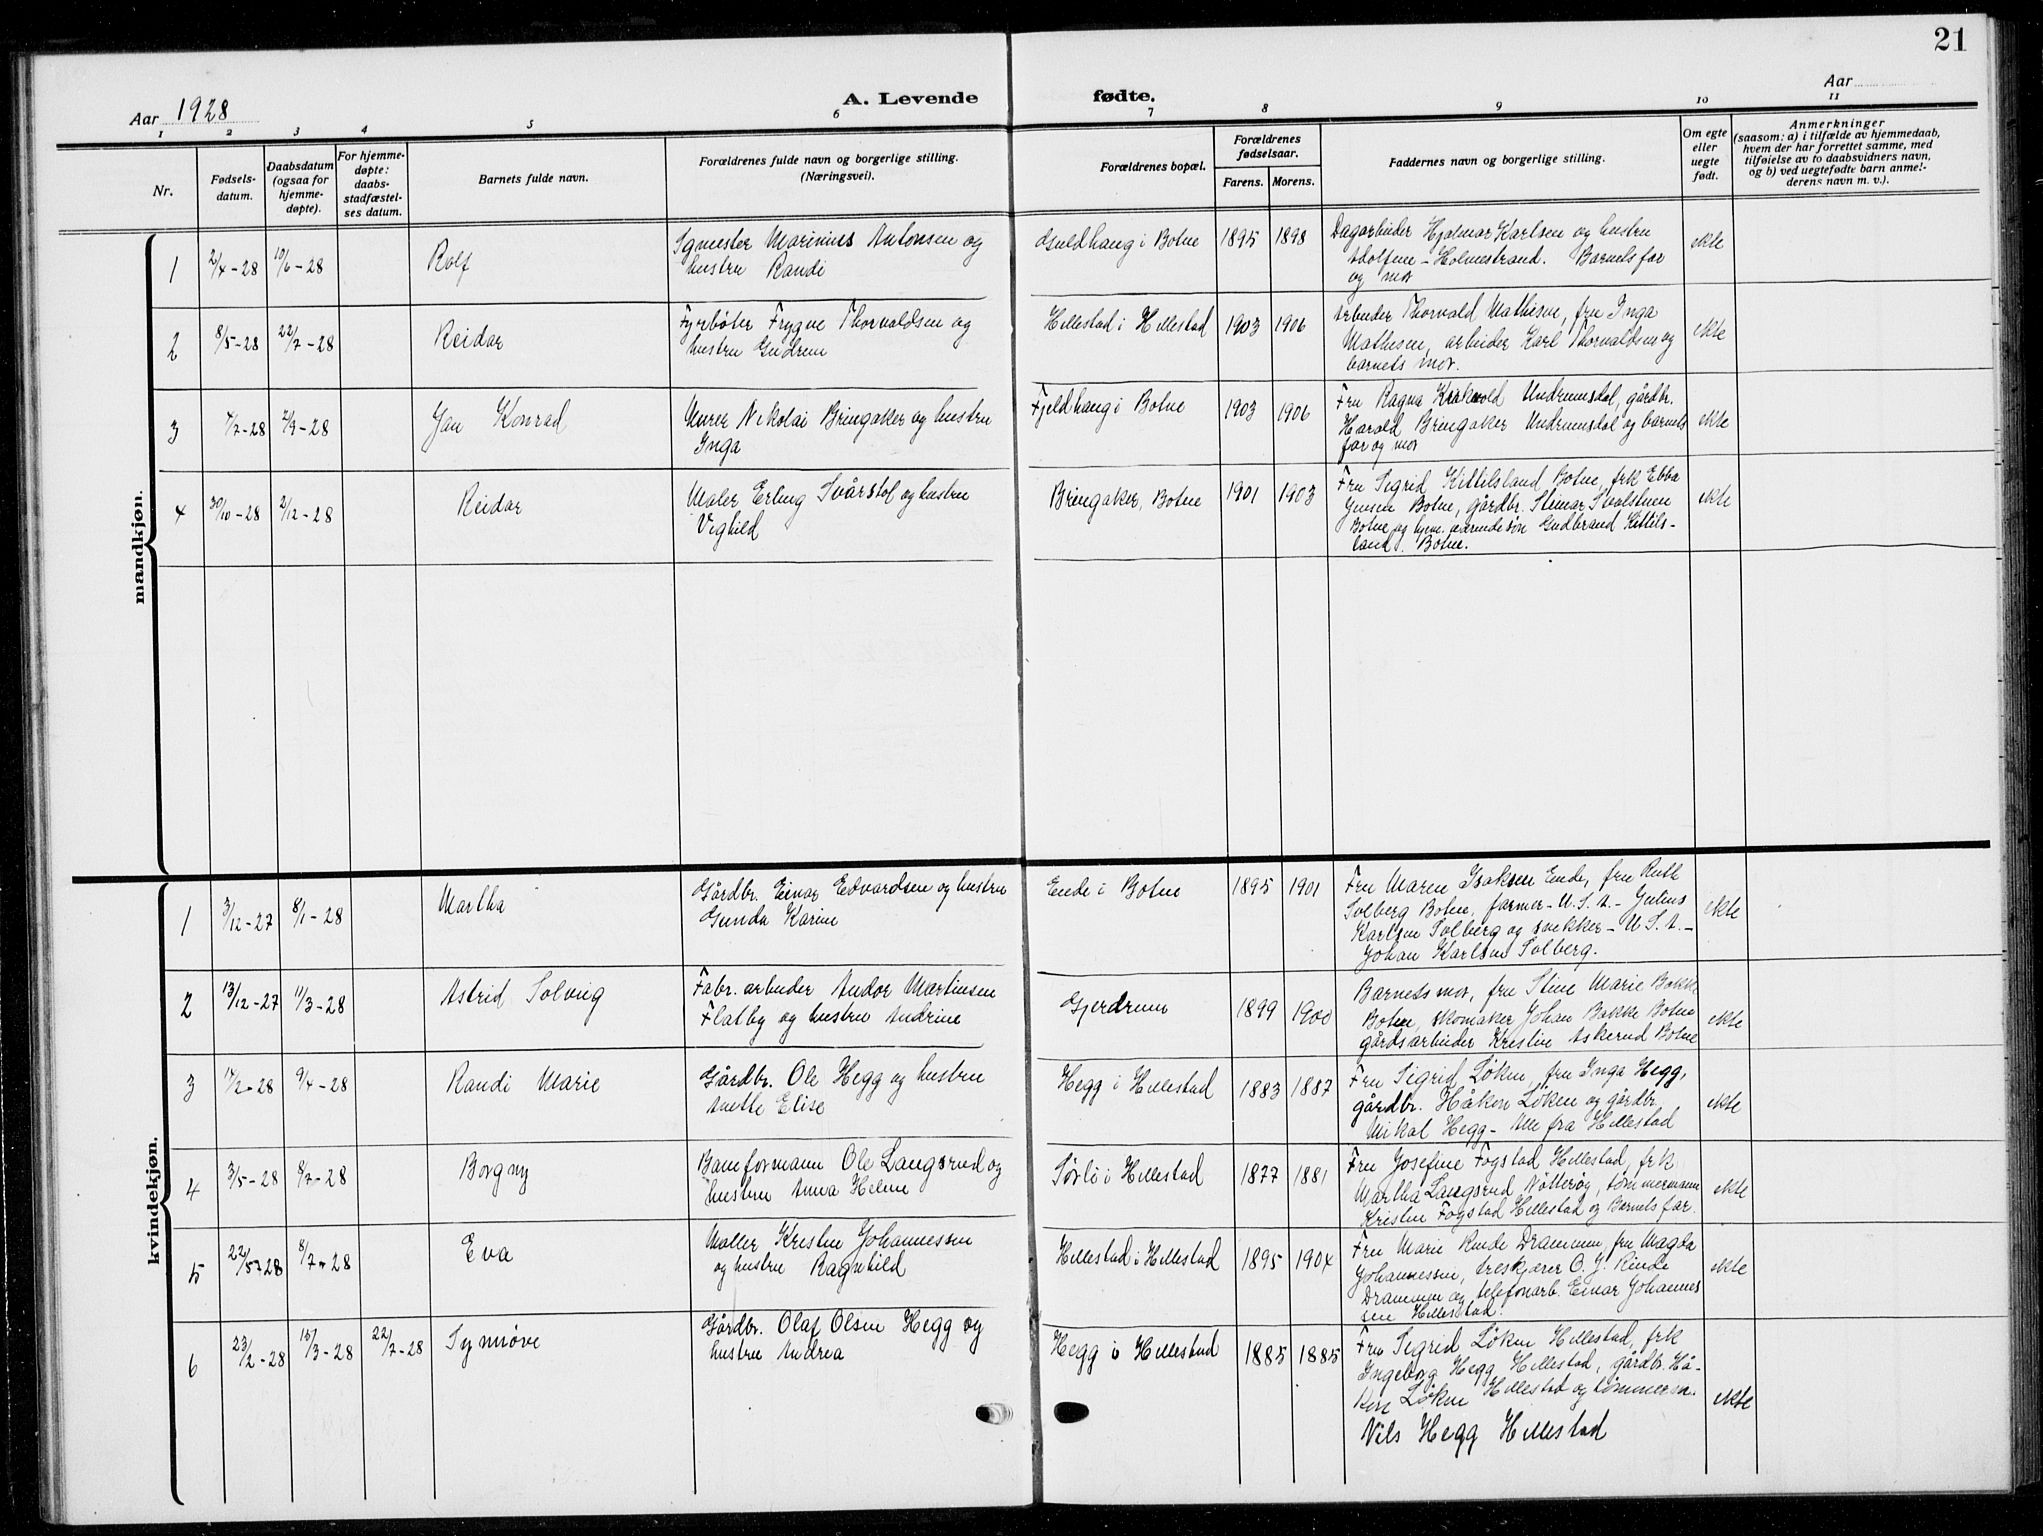 21
Aar 1928
A. Levende fødte.
Aar
1 2 3 4 5 6 7 8 9 10 11
Nr.
Fødsels-
datum.
Daabsdatum
(ogsaa for
hjemme-
døpte).
For hjemme-
døpte:
daabs-
stadfæstel-
ses datum.
Barnets fulde navn.
Forældrenes fulde navn og borgerlige stilling.
(Næringsvei).
Forældrenes bopæl.
Forældrenes
fødselsaar.
Farens. Morens.
Faddernes navn og borgerlige stilling.
Om egte
eller
uegte
født.
Anmerkninger
(saasom: a) i tilfælde av hjemmedaab,
hvem der har forrettet samme, med
tilføielse av to daabsvidners navn,
og b) ved uegtefødte barn anmel-
derens navn m. v.).
mandkjøn.
1 2/4-28 10/6-28 Rolf
Marinius Antonsen og
hustru Randi
Guldhaug i Botne 1895 1898
Dagarbeider Hjalmar Karlsen og hustru
Adolfine - Holmestrand. Barnets far
og mor
ekte
2 8/5-28 22/7-28 Reidar
Fyrbøter Trygve Thorvaldsen og
hustru Gudrun
Hillestad i Hillestad 1903 1906
Arbeider Thorvald Mathisen, fru Inga
Mathisen, arbeider Karl Thorvaldsen og
barnets mor.
ekte
3 4/7-28 2/9-28 Jan Konrad
Murer Nikolai Bringaker og hustru
Inga
Fjeldhaug i Botne 1903 1906
Fru Ragna Undrumsdal, gårdbr.
Harald Bringaker Undrumsdal og barnets
far og mor
ekte
4 30/10-28 2/12-28 Reidar
Maler Erling Svårstol og hustru
Vighild
Bringaker, Botne 1901 1903
Fru Sigrid Kittilsland Botne, frk Ebba
Jensen Botne, gårdbr. Steinar
Botne og hjem. værende søn Gudbrand Kittils-
land. Botne.
ekte
kvindekjøn.
1 3/12-27 8/1-28 Martha
Gårdbr. Einar Edvardsen og hustru
Gunda Karine
Ende i Botne 1895 1901
Fru Maren Isaksen Ende, fru Ruth
Solberg Botne, farmer - U.S.A. - Julius
Karlsen Solberg og snekker - U.S.A. -
Johan Karlsen Solberg.
ekte
2 13/12-27 11/3-28 Astrid Solveig
Fabr. arbeider Andor Martinsen
Flatby og hustru Andrine
Gjerdrum 1899 1900
Barnets mor, fru Stine Marie Bakke
Botne, skomaker Johan Bakke Botne
gårdsarbeider Kristine Askerud Botne
ekte
3 17/2-28 9/4-28 Randi Marie
Gårdbr. Ole Hegg og hustru
Anette Elise
Hegg i Hillestad 1883 1887
Fru Sigrid Løken, fru Inga Hegg,
gårdbr. Håkon Løken og gårdbr.
Mikal Hegg - Alle fra Hillestad
ekte
4 3/5-28 8/7-28 Borgny
Baneformann Ole Langsrud og
hustru Anna Helene
Sørli i Hillestad 1877 1881
Fru Josefine Fogstad Hillestad, frk
Martha Langsrud, Nøtterøy, tømmermann
Kristen Fogstad Hillestad og Barnets far.
ekte
5 22/5-28 8/7-28 Eva
Møller Kristen Johannessen
og hustru Ragnhild
Hillestad i Hillestad 1895 1904
Fru Marie Rinde Drammen, fru Magda
Johannessen, treskjærer O. J. Rinde
Drammen og telefonarb. Einar Johannes
sen Hillestad.
ekte
6 23/2-28 15/3-28 22/7-28 Synnøve
Gårdbr. Olaf Olsen Hegg og
hustru Andrea
Hegg i Hillestad 1885 1885
Fru Sigrid Løken Hillestad, frk
Ingeborg Hegg Hillestad, gårdbr. Hå-
kon Løken Hillestad og tømmerm.
Nils Hegg Hillestad
ekte